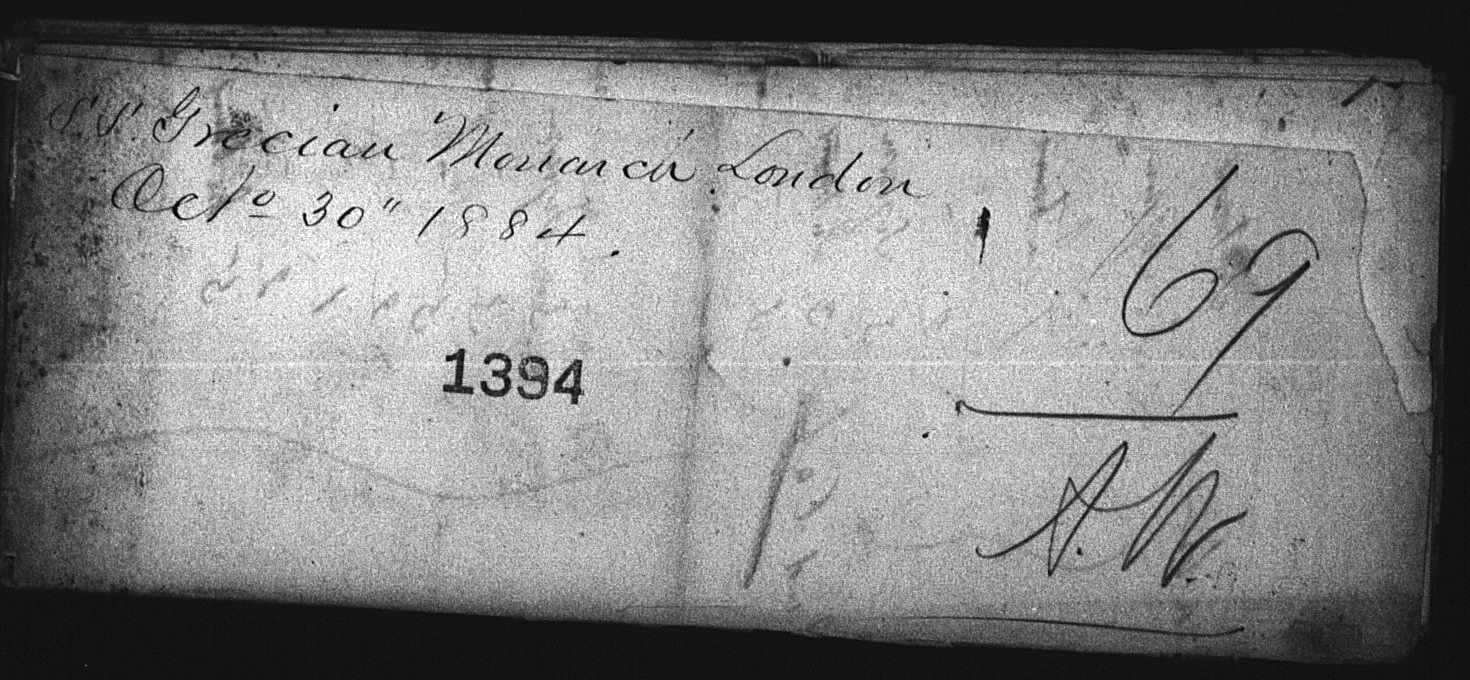 S.S. Grecian Monarch London
Octo 30" 1884.
69
1394
A.W.